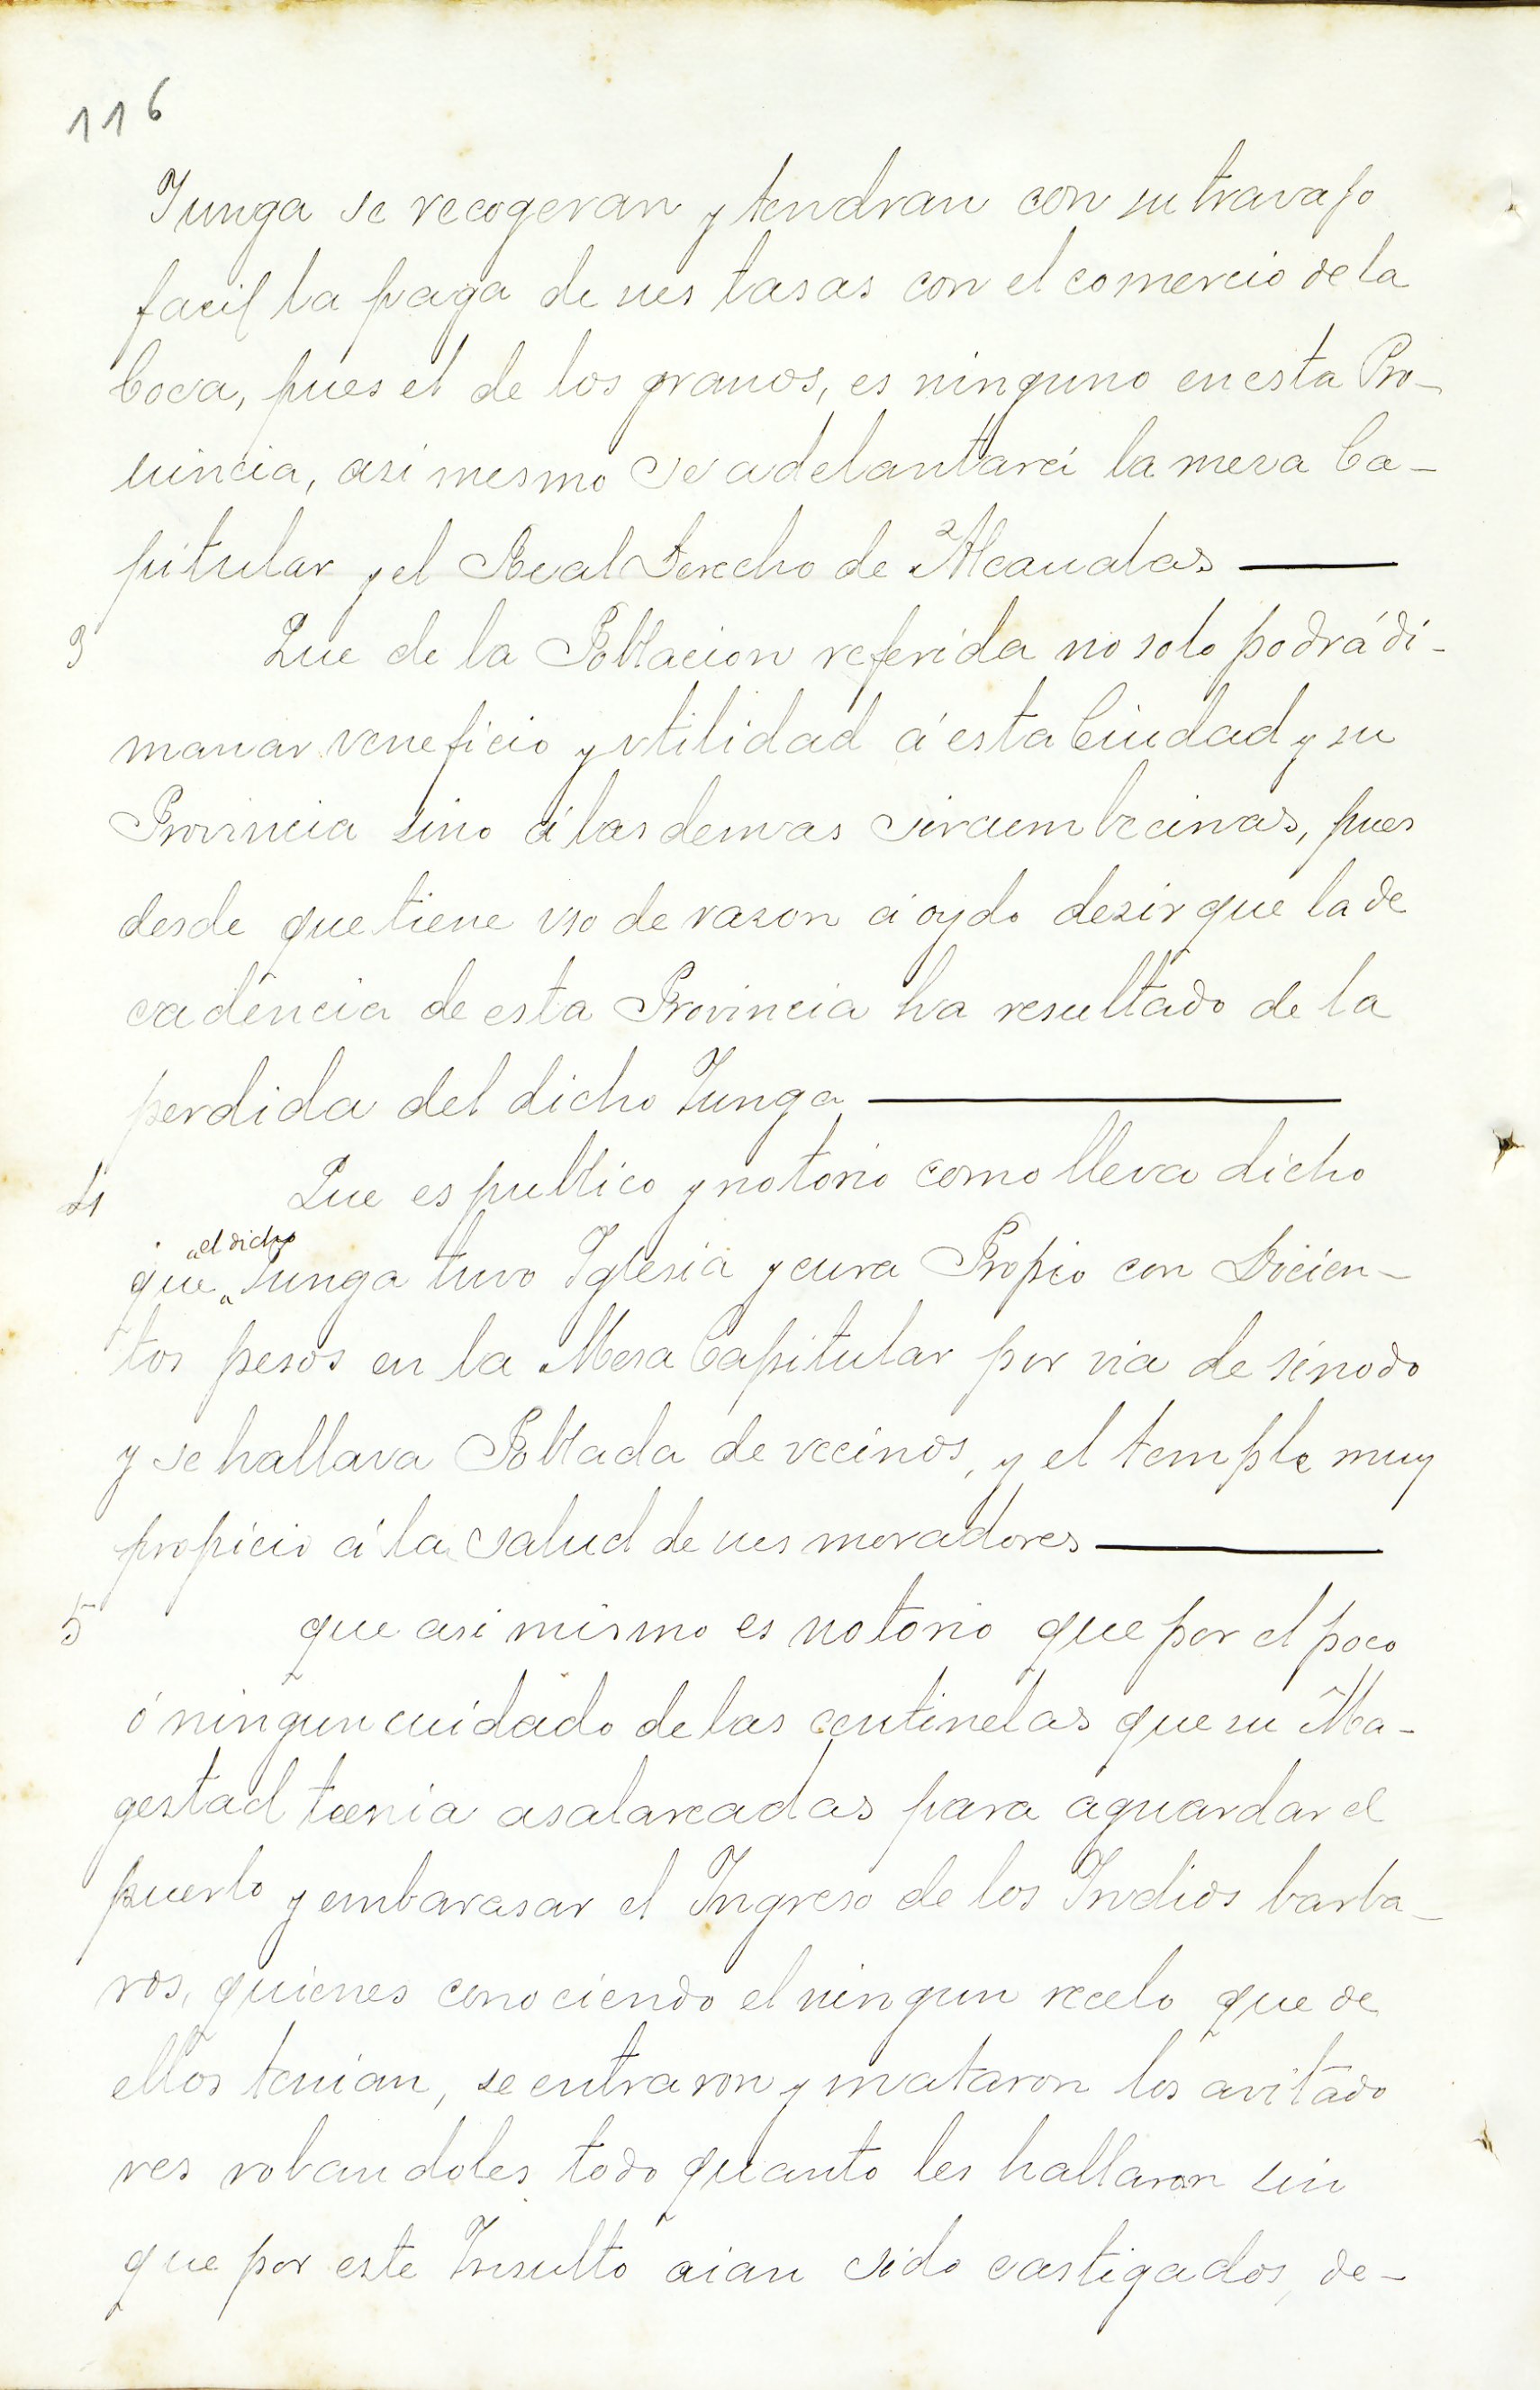 116
Yunga se recogeran y tendran con su travajo
facil la paga de ues tasas con el comercio de la
Coca, pues el de los granos, es ninguno en esta Pro-
uincia, asi mesmo se adelantará la mesa Ca-
pitular y el Real Derecho de Alcaualas
3 Que de la Poblacion referida no solo podrá di-
manar veneficio y vtilidad á esta Ciudad y su
Provincia sino á las demas sircumbecinas, pues
desde que tiene vso de rason á oydo desir que la de
cadencia de esta Provincia ha resultado de la
perdida del dicho Yunga
4 Que es publico y notorio como lleva dicho
"el dicho
que " Yunga tuvo Iglesia y cura Propio con Dicien-
tos pesos en la Mesa Capitular por via de sinodo
y se hallava Poblada de vecinos, y el temple muy
propicio á la salud de ues moradores
5 que asi mismo es notorio que por el poco
ó ningun cuidado de las centinelas que su Ma-
gestad tenia asalareadas para aguardar el
puerto y embarasar el Ingreso de los Indios barba-
ros, quienes conociendo el ningun recelo que de
ellos tenian, se entraron y mataron los avitado
res robandoles todo quanto les hallaron sin
que por este Insulto aian sido castigados, de-